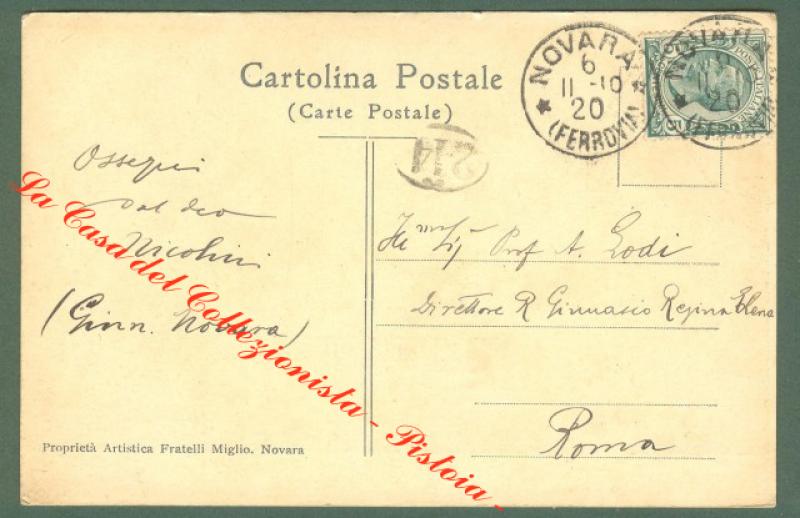 Cartolina Postale
(Carte Postale)
NOVARA
6
11-10
20
(FERROVIA)
20
2-14
Ossequi
dal suo
Nicolini
(Ginn. Novara)
Prof A. Lodi
Direttore R Ginnasio Regina Elena
Roma
Proprietà Artistica Fratelli Miglio. Novara
La Casa del Collezionista - Pistoia -